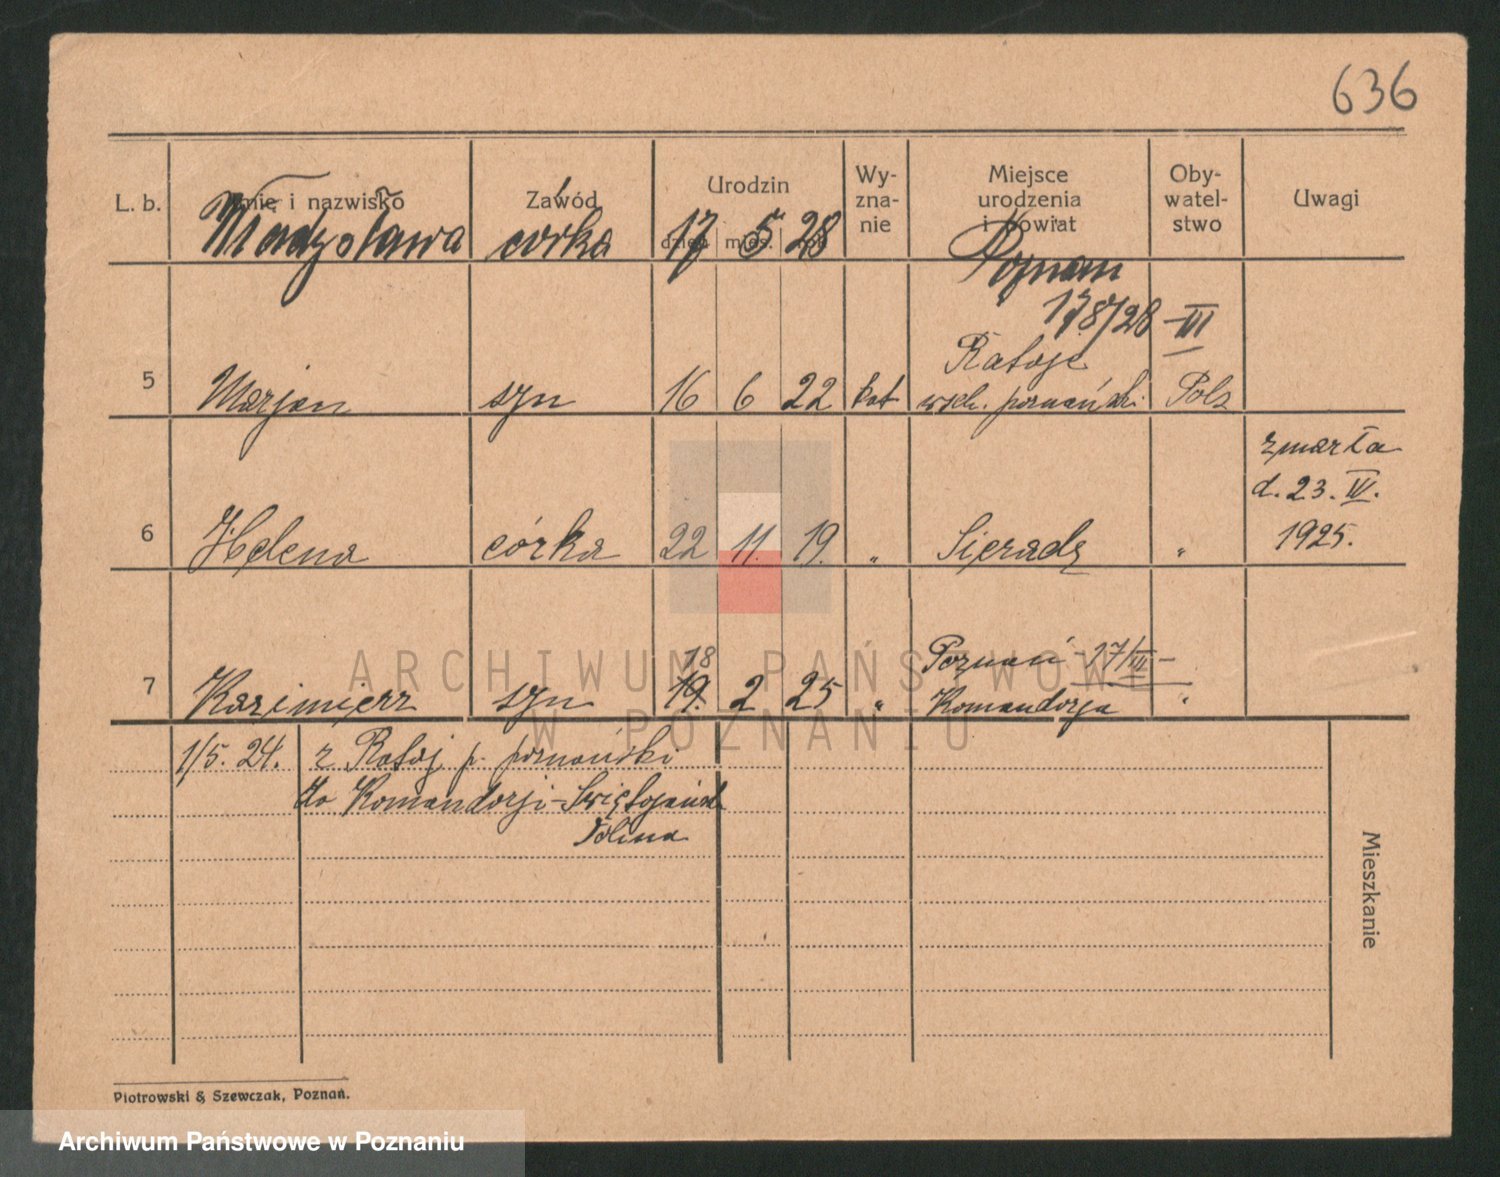 636
L. b. Imię i nazwisko Zawód Urodzin dzień mies. rok Wy-zna-nie Miejsce urodzenia i powiat Oby-watel-stwo Uwagi
Władysława córka 17 5 28 Poznań
17/8/28 - III
5 Marjan syn 16 6 22 kat Rataje
wsch. poznański Pols
6 Helena córka 22 11. 19. " Sieradz " zmarła
d. 23. IV.
1925.
7 Kazimierz syn 18 19. 2 25 " Poznań - 27/III -
Komandorja "
1/5. 24. z Rataj p. poznański
do Komandorji - Świętojańsk
Polina
Mieszkanie
Piotrowski & Szewczak, Poznań.
ARCHIWUM PAŃSTWOWE
W POZNANIU
Archiwum Państwowe w Poznaniu